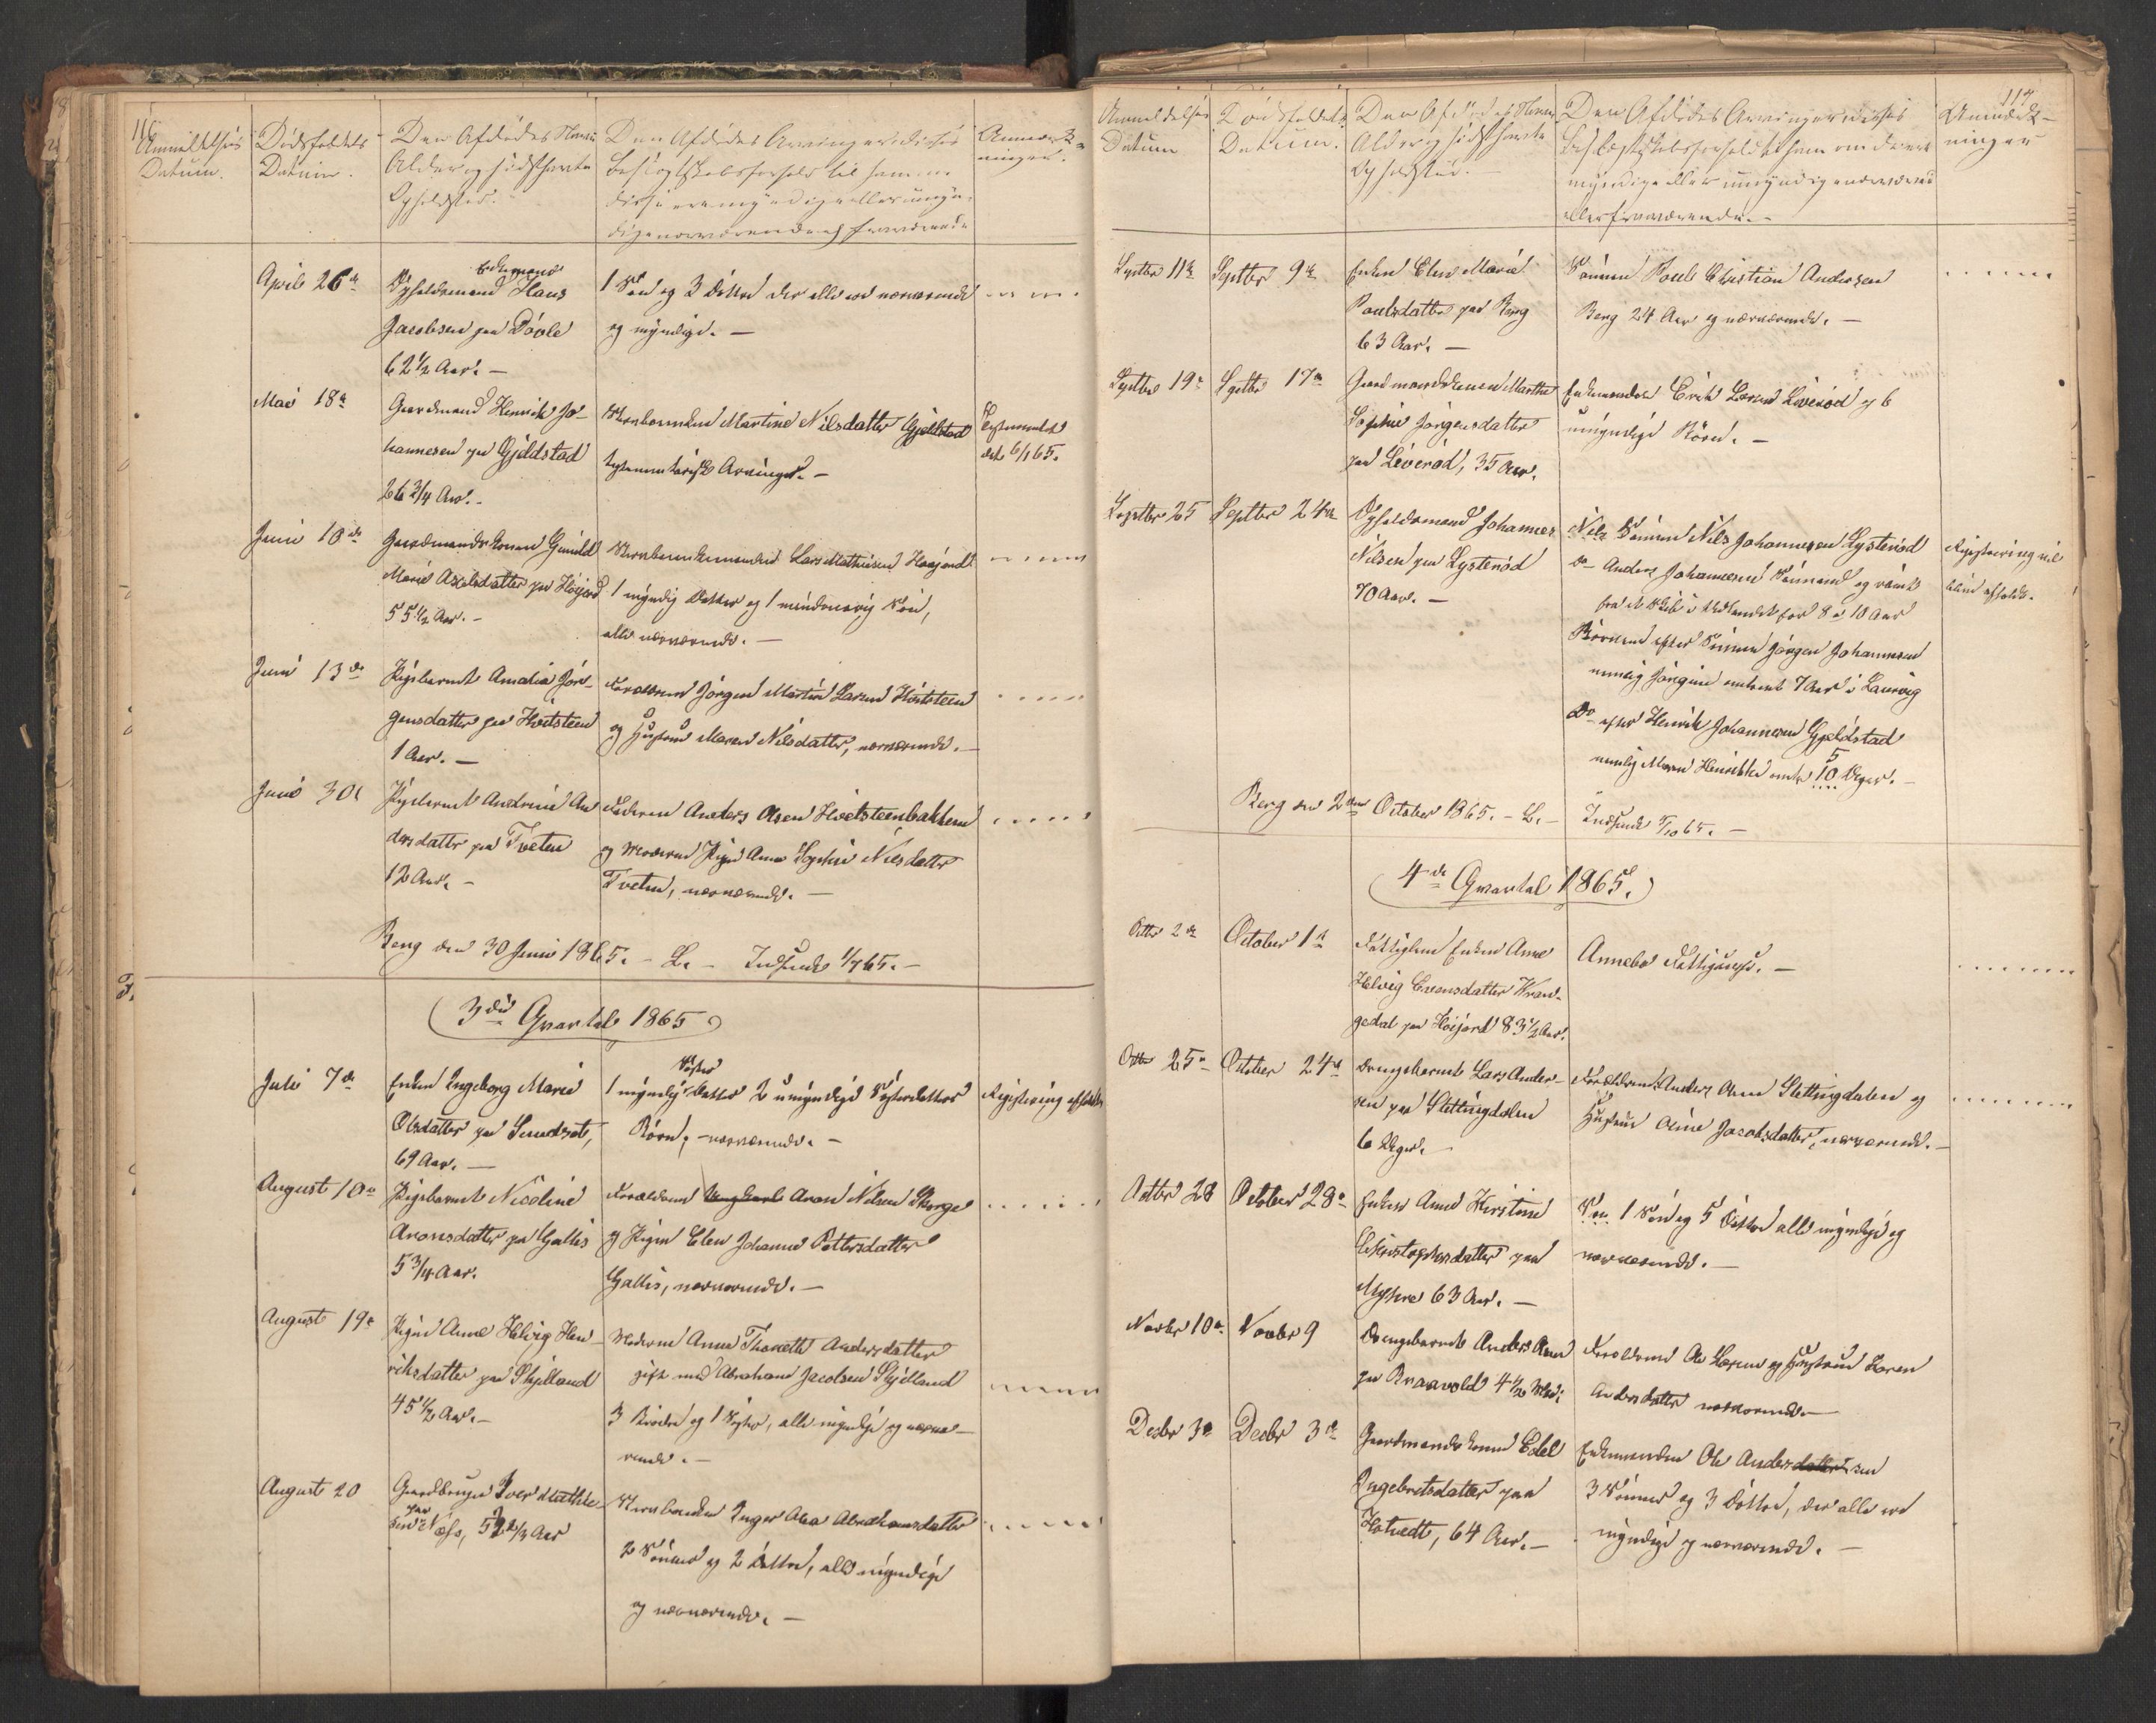 116
Anmeldelsens Datum.
Dödsfaldets Datum.
Den Afdödes Navn Alder og sidst havte Opholdsted.
Den Afdödes Arvinger disses
Beslægtskabsforhold til ham om
disse ere myndige eller umyn-
dige nærværende eller fraværende
Anmærk-
ninger.
April 26de
Enkemand
Opholdsmand Hans
Jacobsen paa
62 1/2 Aar. –
1 Søn og 3 Døttre der alle ere nærværende
og myndige. –
Mai 18de
Gaardmand Henrik Jo-
hannesen paa Gjeldstad
26 3/4 Aar. –
Martine Nilsdatter Gjeldstad
testamentarisk Arvinger. –
Testamentet
dat. 6/1 65.
Juni 10de
Gaardmandskonen Gunild
Marie Axelsdatter paa Høijord
55 1/2 Aar. –
Lars Mathisen Høijord
1 myndig Datter og 1 mindreaarig Søn,
alle nærværende. –
Juni 13de
Pigebarnet Amalia Jör-
gensdatter paa Hvitsteen
1 Aar. –
Forældrene Jörgen Martin Larsen Hvitsteen
og Hustrue Maren Nilsdatter, nærværende. –
Juni 30te
Pigebarnet Andrine An
dersdatter paa Tveten
12 Aar. –
Faderen Anders Olsen Hvitsteenbakken
og Moderen Pigen Anne Sophie Nilsdatter
Tveten, nærværende. –
Berg den 30 Juni 1865. – L. – Indsendt 1/7 65. –
3die Qvartal 1865
Juli 7de
Enken Ingeborg Marie
Olsdatter paa Sundset,
69 Aar. –
Søster
1 myndig Datter 2 umyndige Søsterdatters
Børn, – nærværende. –
Registrering afholdt
August 10de
Pigebarnet Nicoline
Aronsdatter paa Gallis
5 3/4 Aar.
Forældrene Ungkarl Aron Nilsen Skorge
og Pigen Elen Johanne Pettersdatter
Gallis, nærværende. –
August 19de
Pigen Anne Helvig Hen-
riksdatter paa Skjelland
45 1/2 Aar. –
Moderen Anne Thorette Andersdatter
gift med Abraham Jacobsen Skjelland
3 Brødre og 1 Søster, alle myndige og nærvæ-
rende. –
August 20
Gaardbruger Iver Mathie-
paa
sen Næss, 52 1/2 Aar
Inger Alea Abrahamsdatter
2 Sønner og 2 Døttre, alle myndige
og nærværende. –
117
Anmeldelsens
Datum
Dödsfaldets
Datum.
Den Afdødes Navn
Alder og sidst havte
Opholdsted. –
Den Afdødes Arvinger disses
Beslægtskabsforhold til ham om de ere
myndige eller umyndige nærværende
eller fraværende. –
Anmærk-
ninger
Septbr 11te
Septbr 9de
Enken Elen Marie
Poulsdatter paa Berg
63 Aar. –
Sønnen Poul Christian Andersen
Berg 24 Aar og nærværende. –
Septbr 19de
Septbr 17de
Gaardmandskonen Marthe
Sophie Jörgensdatter
paa Liveröd, 35 Aar.
Enkemanden Erik Larsen Liveröd og 6
umyndige Børn. –
Septbr 25
Septbr 24de
Opholdsmand Johannes
Nilsen paa Lysteröd
70 Aar. –
Nils Sönnen Nils Johannesen Lysteröd
Do Anders Johannesen Sömand og römt
fra et Skib i Udlandet for 8 a 10 Aar
Börnene efter Sönnen Jörgen Johannesen
nemlig Jörgine omtrent 7 Aar i Laurvig
Do efter Henrik Johannesen Gjeldstad
5
nemlig Maren Henrikke omtr. 10 Uger. –
Registrering vil
blive afholdt.
Berg den 2den October 1865. – L. – Indsendt 5/10 65. –
4de Qvartal 1865.
Octbr 2de
October 1ste
Fattiglem Enken Anne
Helvig Evensdatter Kran-
gedal paa Höijord 83 1/2 Aar.
Annebo Fattigvæsen. –
Octbr 25de
October 24de
Drengebarnet Lars Ander-
sen paa Slettingdalen
6 Uger. –
Forældrene Anders Olsen Slettingdalen og
Hustrue Oline Jacobsdatter, nærværende. –
Octbr 28
October 28de
Enken Anne Kirstine
Christophersdatter paa
Myhre 63 Aar. –
Søn 1 Søn og 5 Døttre alle myndige og
nærværende. –
Novbr 10de
Novbr 9
Drengebarnet Anders Olsen
paa 4 1/2 Md:
Forældrene Ole Larsen og Hustrue Karen
Andersdatter nærværende. –
Decbr 3de
Decbr 3de
Gaardmandskonen Edel
Engebretsdatter paa
Hotvedt, 64 Aar. –
Enkemanden Ole Andersdatter sen
3 Sønner og 3 Døttre, der alle ere
myndige og nærværende. –